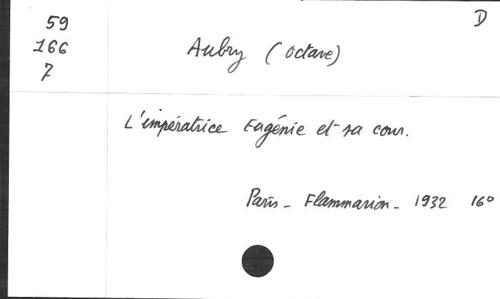 D
59
166
7
Aubry (Octave)
L'impératrice Eugénie et sa cour.
Paris - Flammarion - 1932 16°